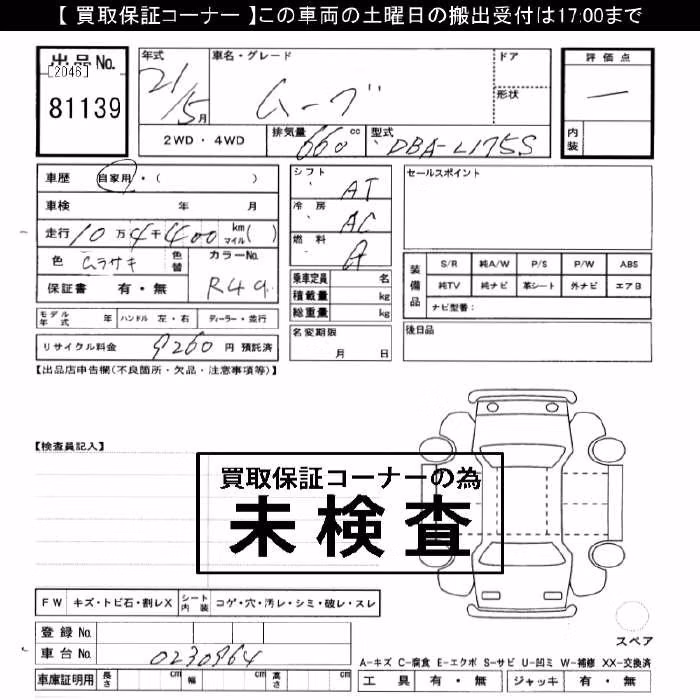 【 買取保証コーナー 】この車両の土曜日の搬出受付は17:00まで
出品No.
[2046]
81139
年式
21/5月
車名・グレード
ムーブ
ドア
形状
評価点
―
内装
2WD・4WD
排気量 660 cc
型式 DBA-L175S
車歴 自家用・( )
車検 年 月
走行 10万4千400 km マイル( )
色 ムラサキ 色替
カラーNo. R49
保証書 有・無
シフト AT
冷房 AC
燃料 A
乗車定員 名
積載量 kg
総重量 kg
セールスポイント
装備品
S/R 純A/W P/S P/W ABS
純TV 純ナビ 革シート 外ナビ エアB
ナビ型番：
モデル年式 年 ハンドル 左・右 ディーラー・並行
リサイクル料金 9260 円 預託済
名変期限 月 日
後日品
【出品店申告欄(不良箇所・欠品・注意事項等)】
【検査員記入】
買取保証コーナーの為
未検査
FW キズ・トビ石・割レX シート内装 コゲ・穴・汚レ・シミ・破レ・スレ
登録No.
車台No. 0230964
車庫証明用 長さ cm 幅 cm 高さ cm
スペア
A-キズ C-腐食 E-エクボ S-サビ U-凹ミ W-補修 XX-交換済
工具 有・無 ジャッキ 有・無